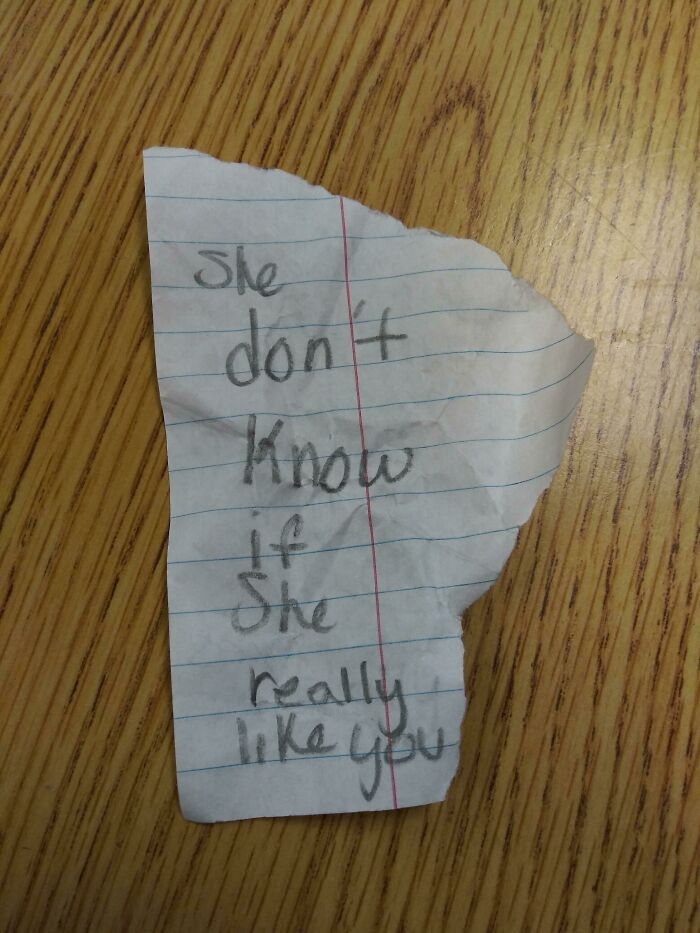 She
don't
Know
if
She
really
like you